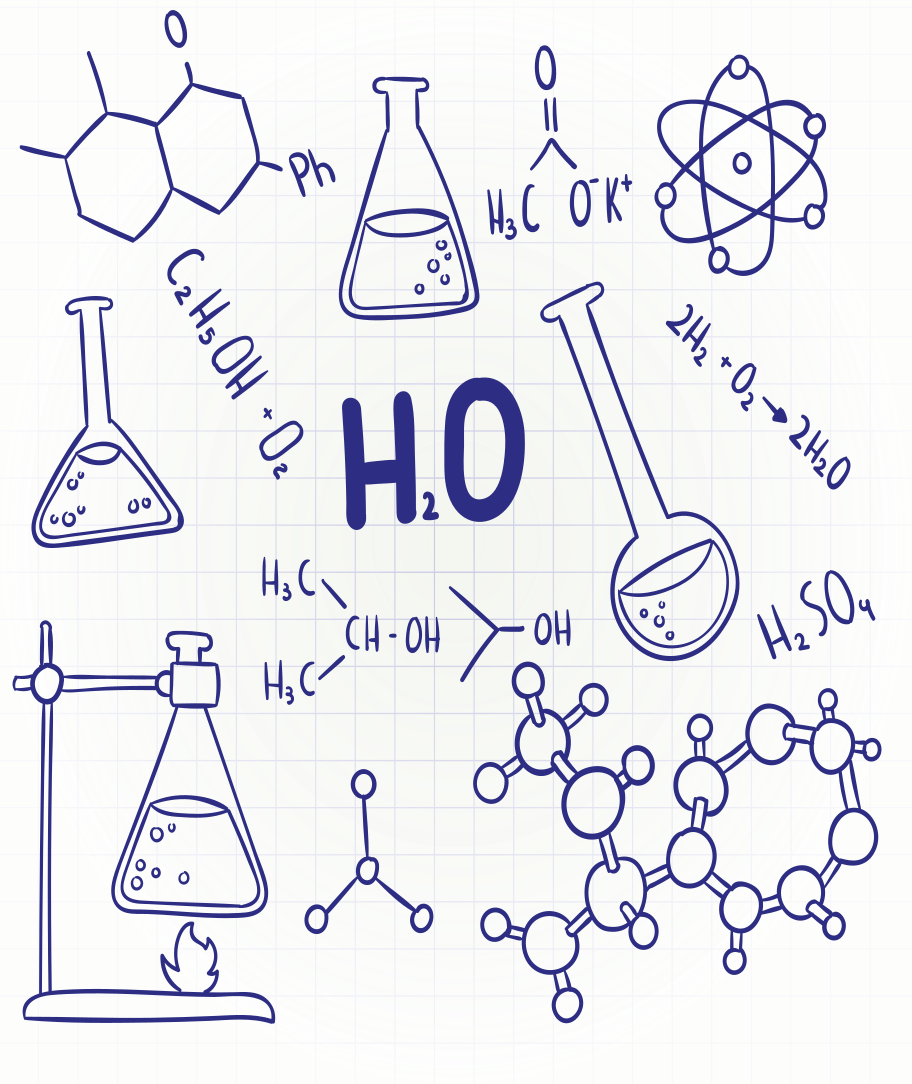 O
Ph
O
H₃C O⁻K⁺
C₂H₅OH + O₂
2H₂ + O₂ → 2H₂O
H₂O
H₃C
CH - OH
H₃C
OH
H₂SO₄